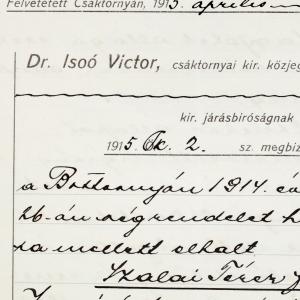 Felvétetett Csáktornyán, 1915 április
Dr. Isoó Victor, csáktornyai kir. közjeg
kir. járásbíróságnak
1915. Ök. 2. sz. megbíz
a Bottornyán 1914. év
26-án végrendelet h
ra mellett elhalt
Szalai Teréz